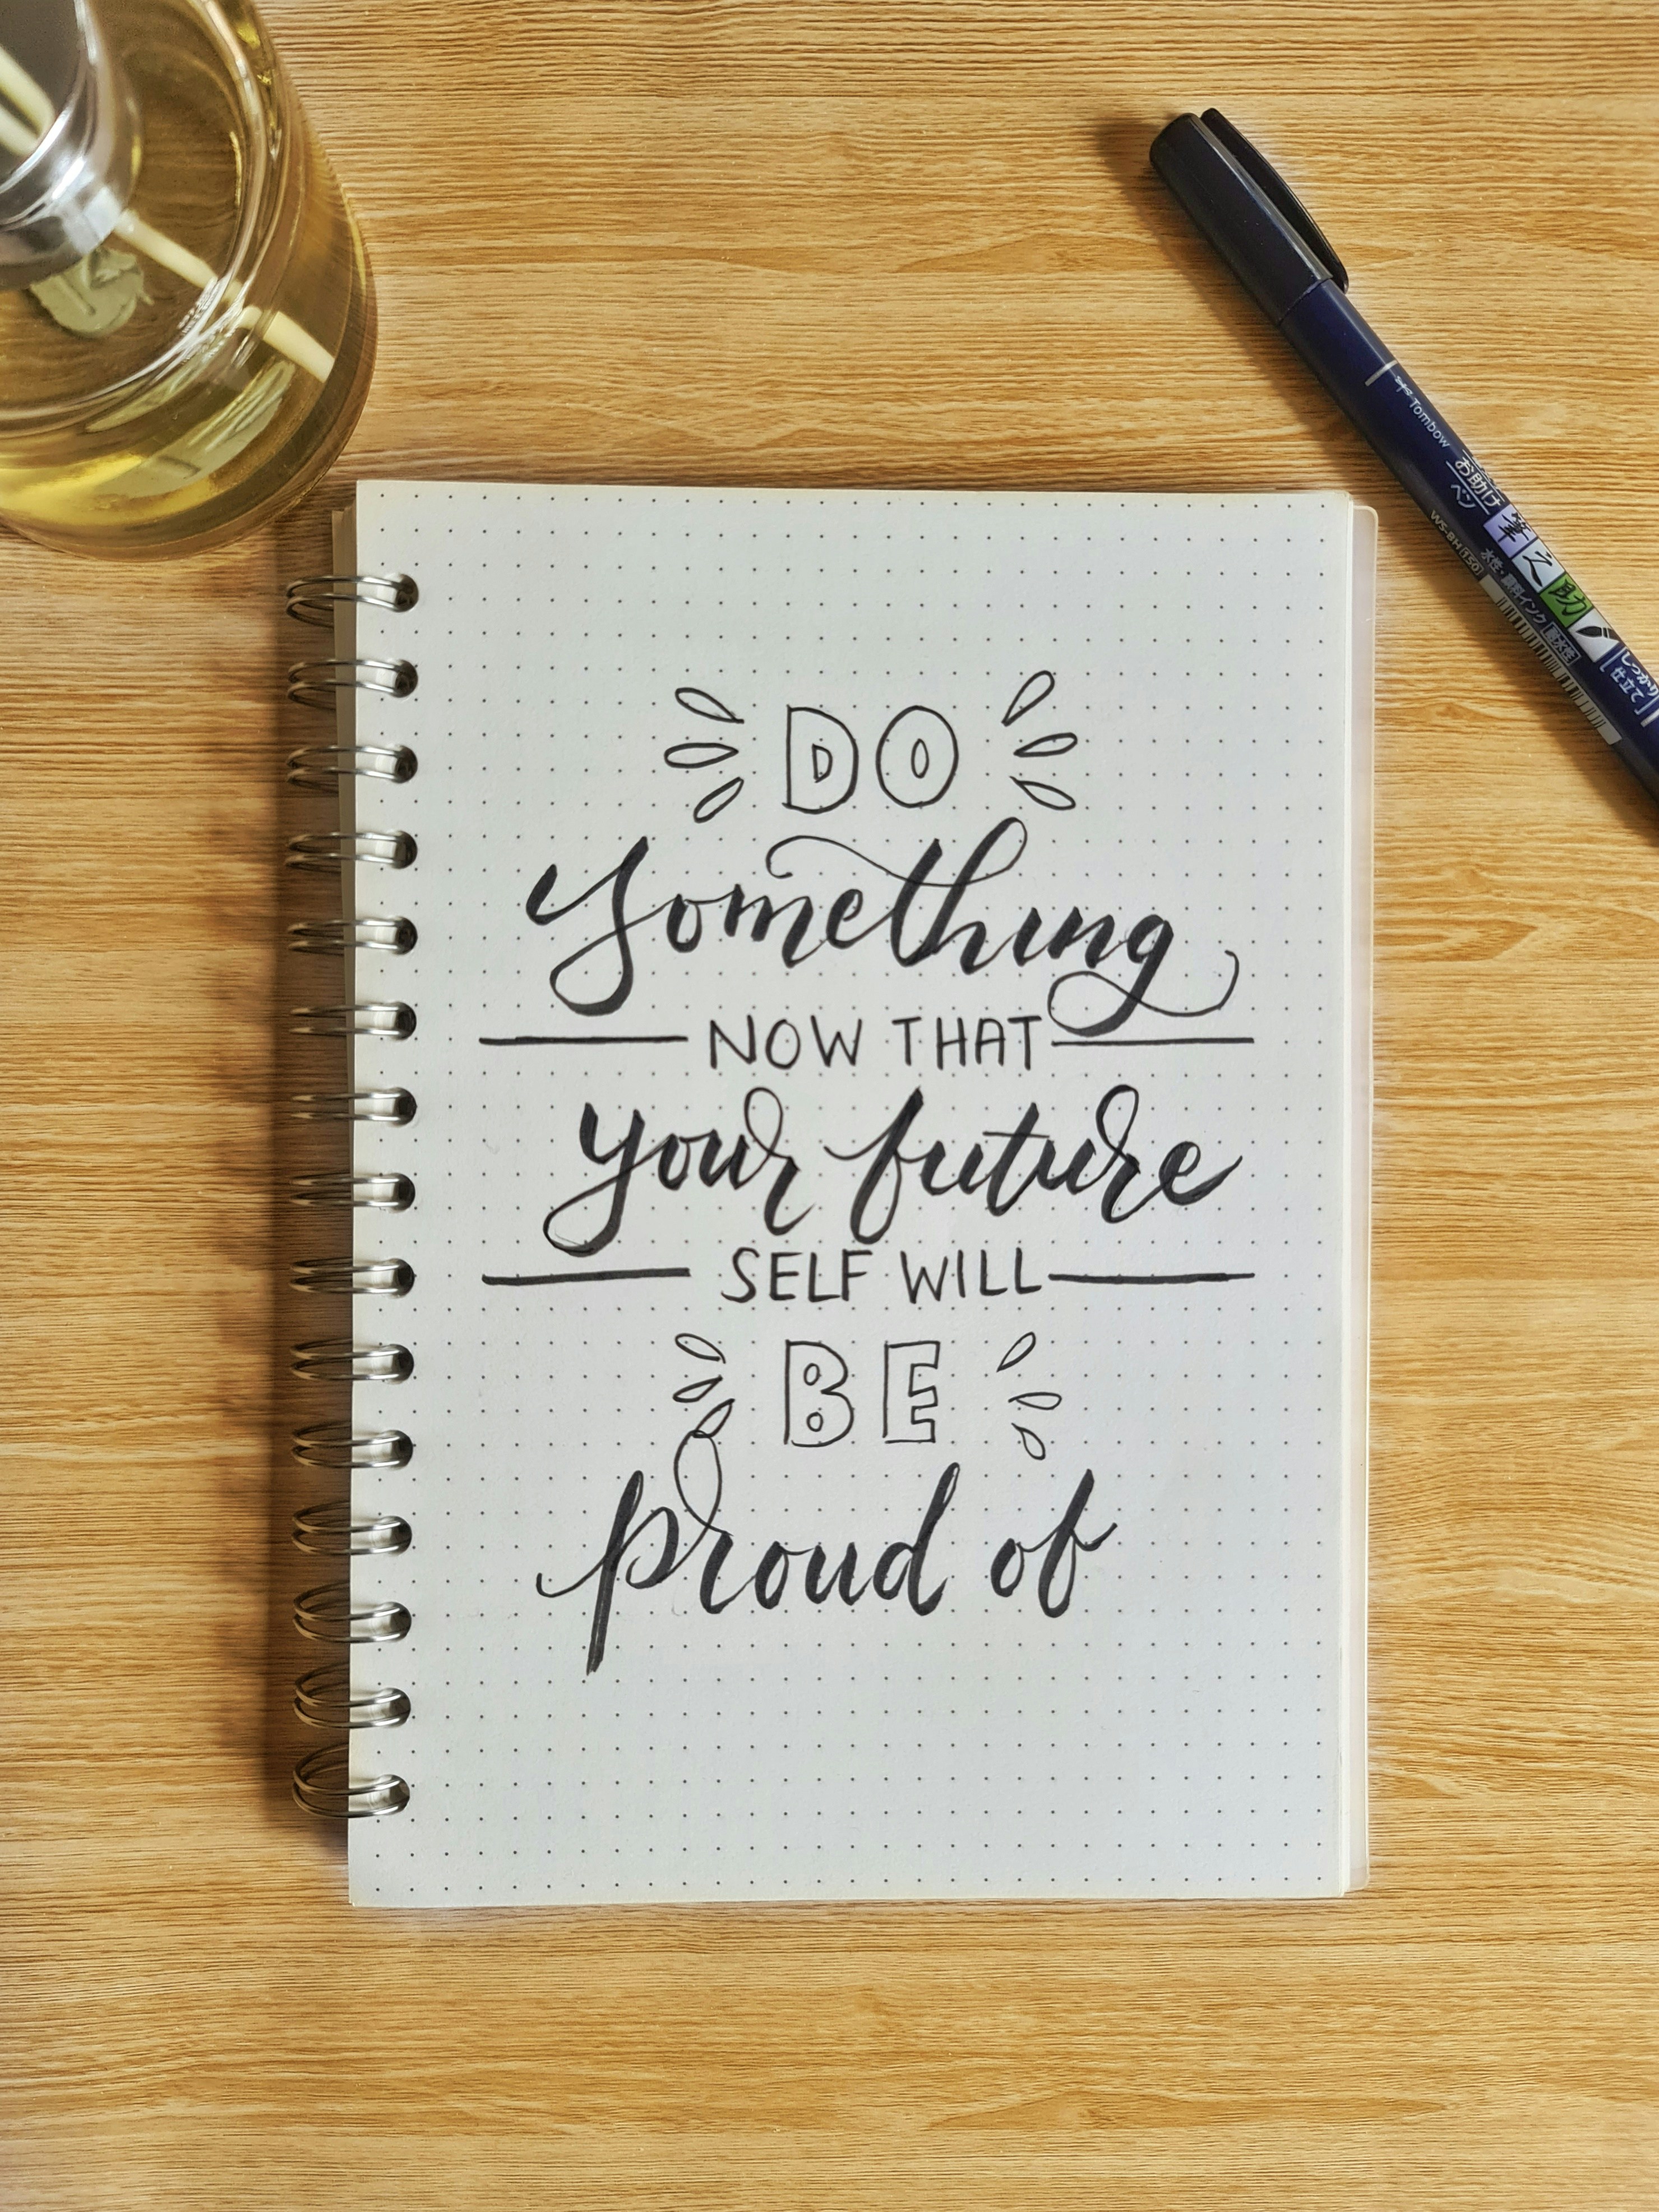 DO
something
NOW THAT
your future
SELF WILL
BE
proud of
Tombow
お助け
ペン
WS-BH(150)
筆之助
水性・顔料インク 耐水性
しっかり
仕立て